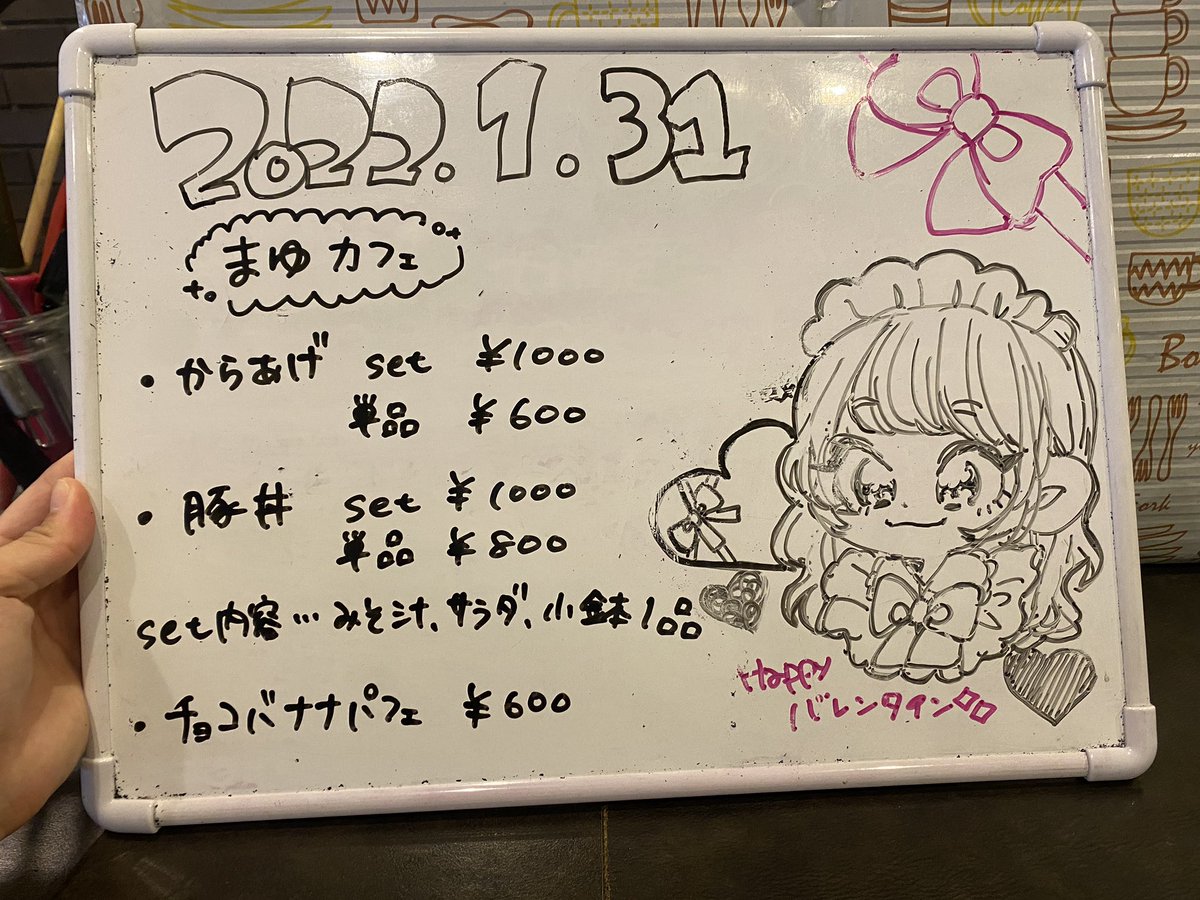 2022.1.31
まゆカフェ
・からあげ set ¥1000
単品 ¥600
・豚丼 set ¥1000
単品 ¥800
set内容…みそ汁、サラダ、小鉢1品
・チョコバナナパフェ ¥600
Happy
バレンタイン